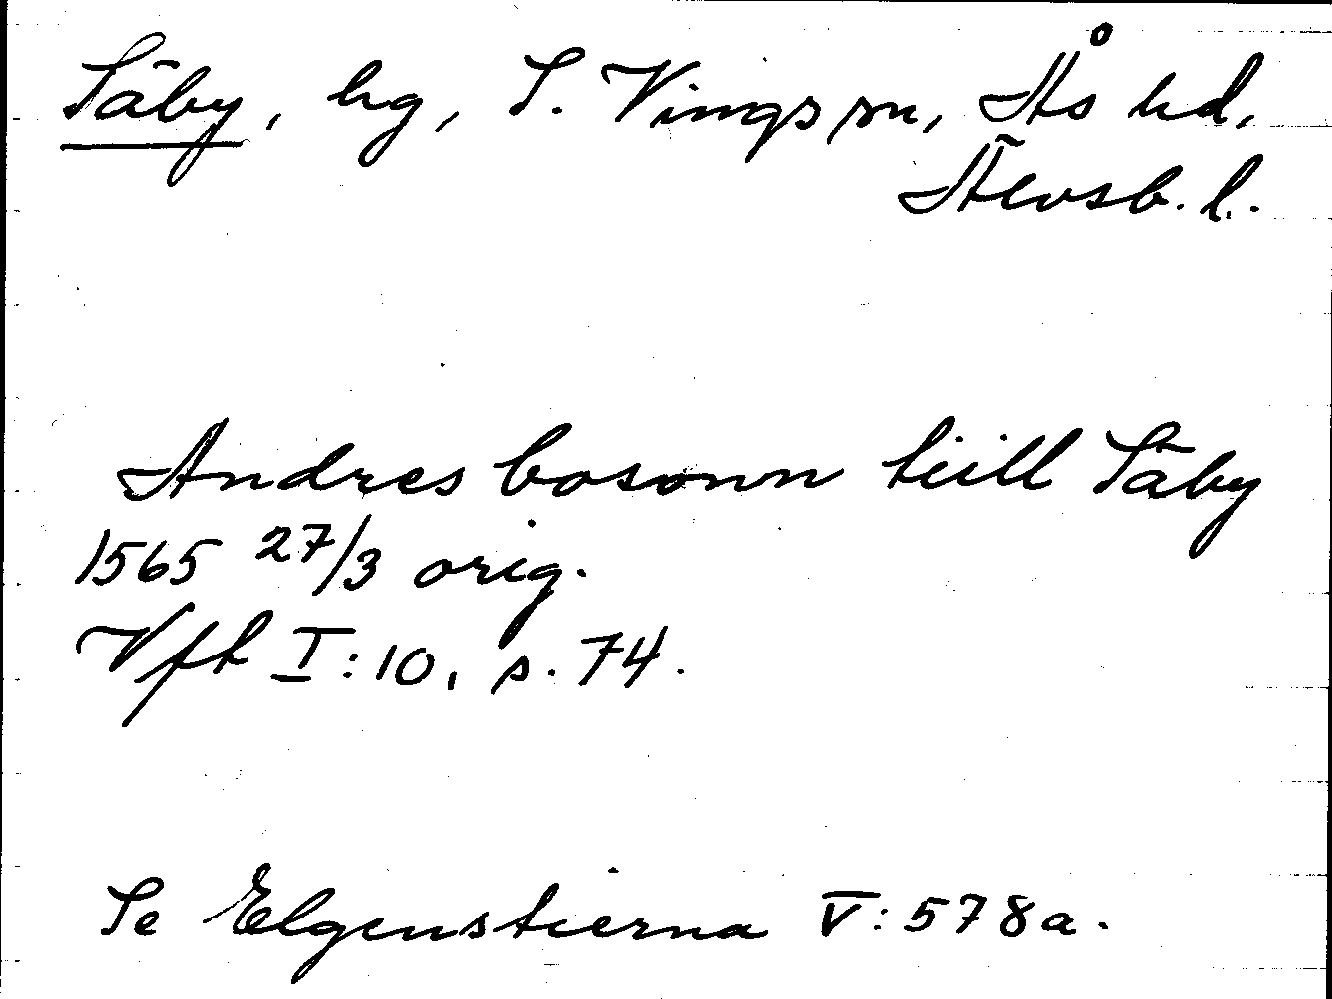 Säby, hg, S. Vings sn, Ås hd,
Älvsb. l.
Andres bosonn tiill Säby
1565 27/3 orig.
Vft I:10, s. 74.
Se Elgenstierna V:578a.